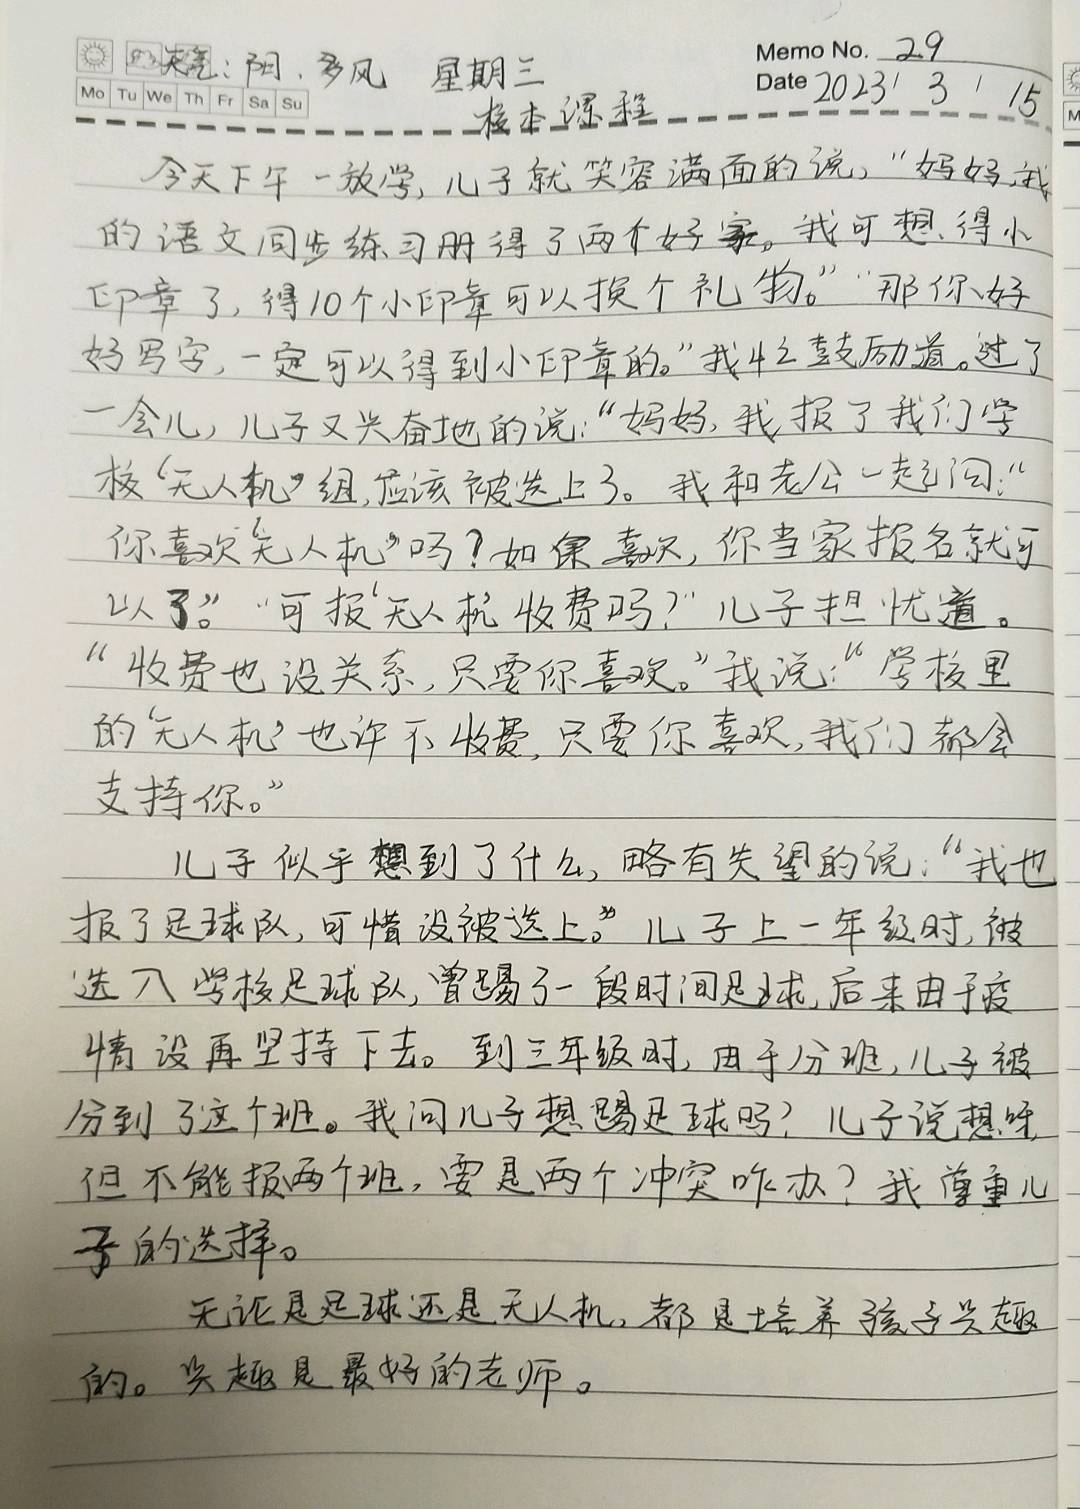 天气：阳、多风 星期三
Memo No. 29
Mo Tu We Th Fr Sa Su
Date 2023 / 3 / 15
校本课程
今天下午一放学，儿子就笑容满面的说，“妈妈，我
的语文同步练习册得了两个好家。我可想得小
印章了，得10个小印章可以换个礼物。”“那你好
好写字，一定可以得到小印章的。”我忙鼓励道。过了
一会儿，儿子又兴奋地的说：“妈妈，我报了我们学
校‘无人机’组，应该被选上了。我和老公一起问：“
你喜欢‘无人机’吗？如果喜欢，你当家报名就可
以了。”“可报‘无人机’收费吗？”儿子担忧道。
“收费也没关系，只要你喜欢。”我说：“学校里
的‘无人机’也许不收费，只要你喜欢，我们都会
支持你。”
儿子似乎想到了什么，略有失望的说：“我也
报了足球队，可惜没被选上。”儿子上一年级时，被
选入学校足球队，曾踢了一段时间足球，后来由于疫
情没再坚持下去。到三年级时，由于分班，儿子被
分到了这个班。我问儿子想踢足球吗？儿子说想呀
但不能报两个班，要是两个冲突咋办？我尊重儿
子的选择。
无论是足球还是无人机，都是培养孩子兴趣
的。兴趣是最好的老师。